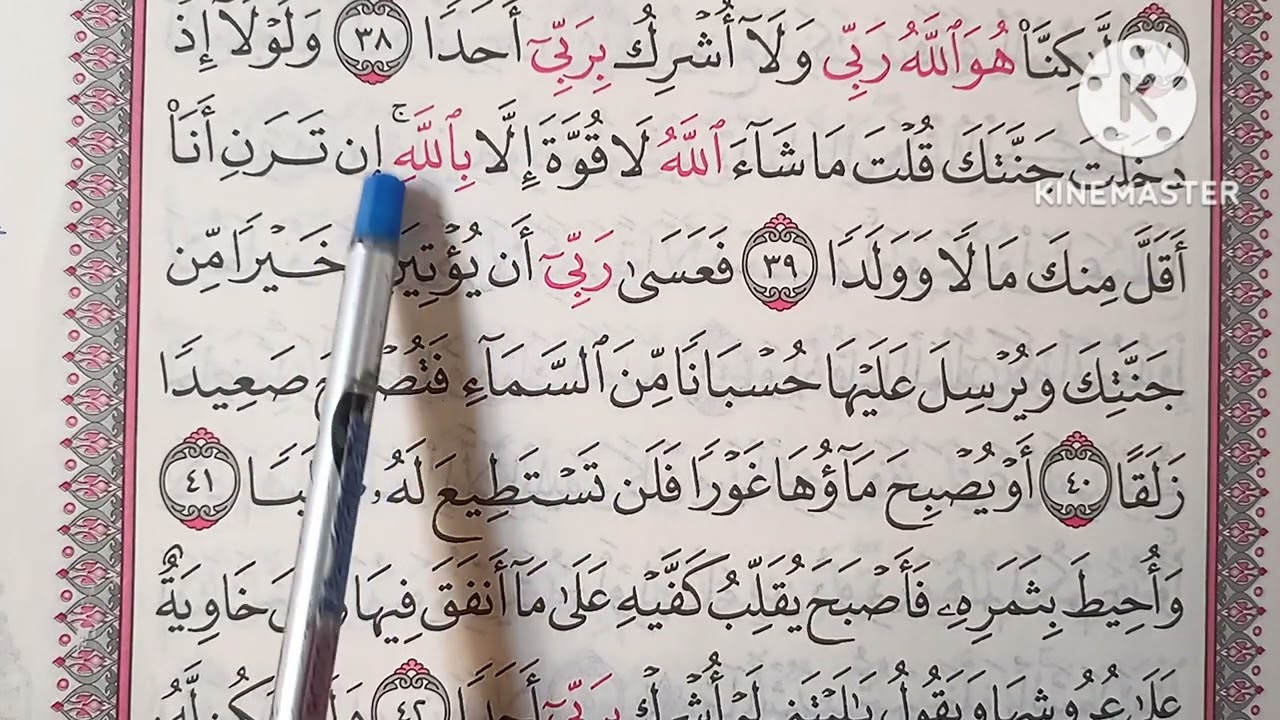 لَّٰكِنَّا۠ هُوَ ٱللَّهُ رَبِّى وَلَآ أُشْرِكُ بِرَبِّىٓ أَحَدًا ٣٨ وَلَوْلَآ إِذْ
دَخَلْتَ جَنَّتَكَ قُلْتَ مَا شَآءَ ٱللَّهُ لَا قُوَّةَ إِلَّا بِٱللَّهِ ۚ إِن تَرَنِ أَنَا۠
أَقَلَّ مِنكَ مَالًا وَوَلَدًا ٣٩ فَعَسَىٰ رَبِّىٓ أَن يُؤْتِيَنِ خَيْرًا مِّن
جَنَّتِكَ وَيُرْسِلَ عَلَيْهَا حُسْبَانًا مِّنَ ٱلسَّمَآءِ فَتُصْبِحَ صَعِيدًا
زَلَقًا ٤٠ أَوْ يُصْبِحَ مَآؤُهَا غَوْرًا فَلَن تَسْتَطِيعَ لَهُۥ ٤١
وَأُحِيطَ بِثَمَرِهِۦ فَأَصْبَحَ يُقَلِّبُ كَفَّيْهِ عَلَىٰ مَآ أَنفَقَ فِيهَا خَاوِيَةٌ
عَلَىٰ عُرُوشِهَا وَيَقُولُ يَٰلَيْتَنِى لَمْ أُشْرِكْ بِرَبِّىٓ أَحَدًا ٤٢ وَلَمْ تَكُن لَّهُۥ
KINEMASTER